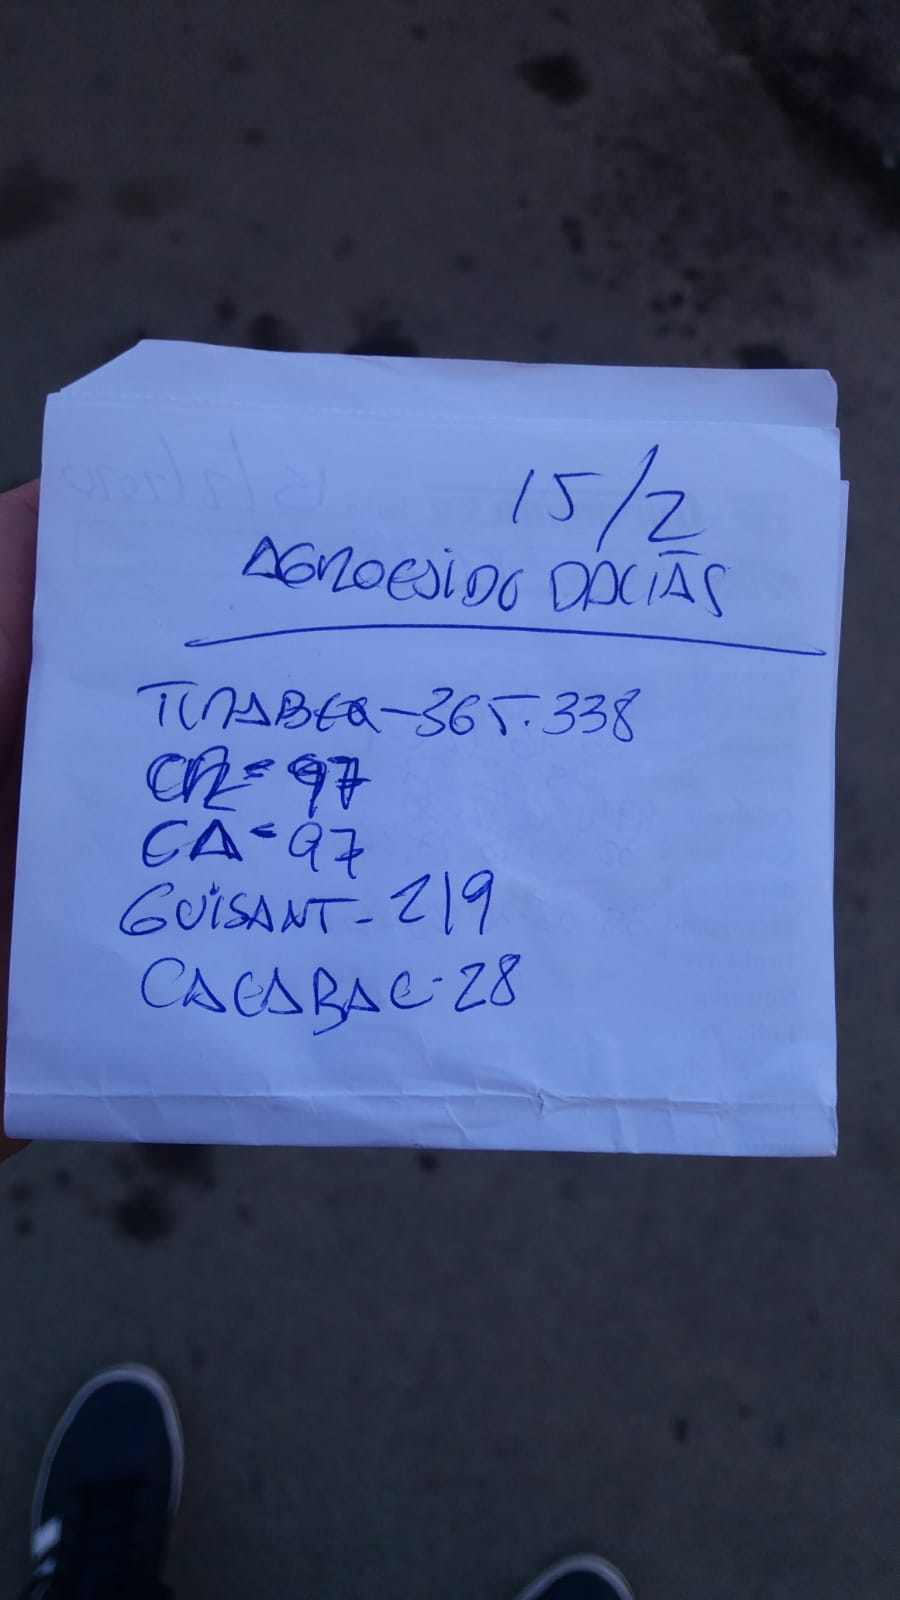 15/2
AGROEJIDO DALIAS
TIRABEQ-365.338
CR=97
CA=97
GUISANT-219
CACABAC-28